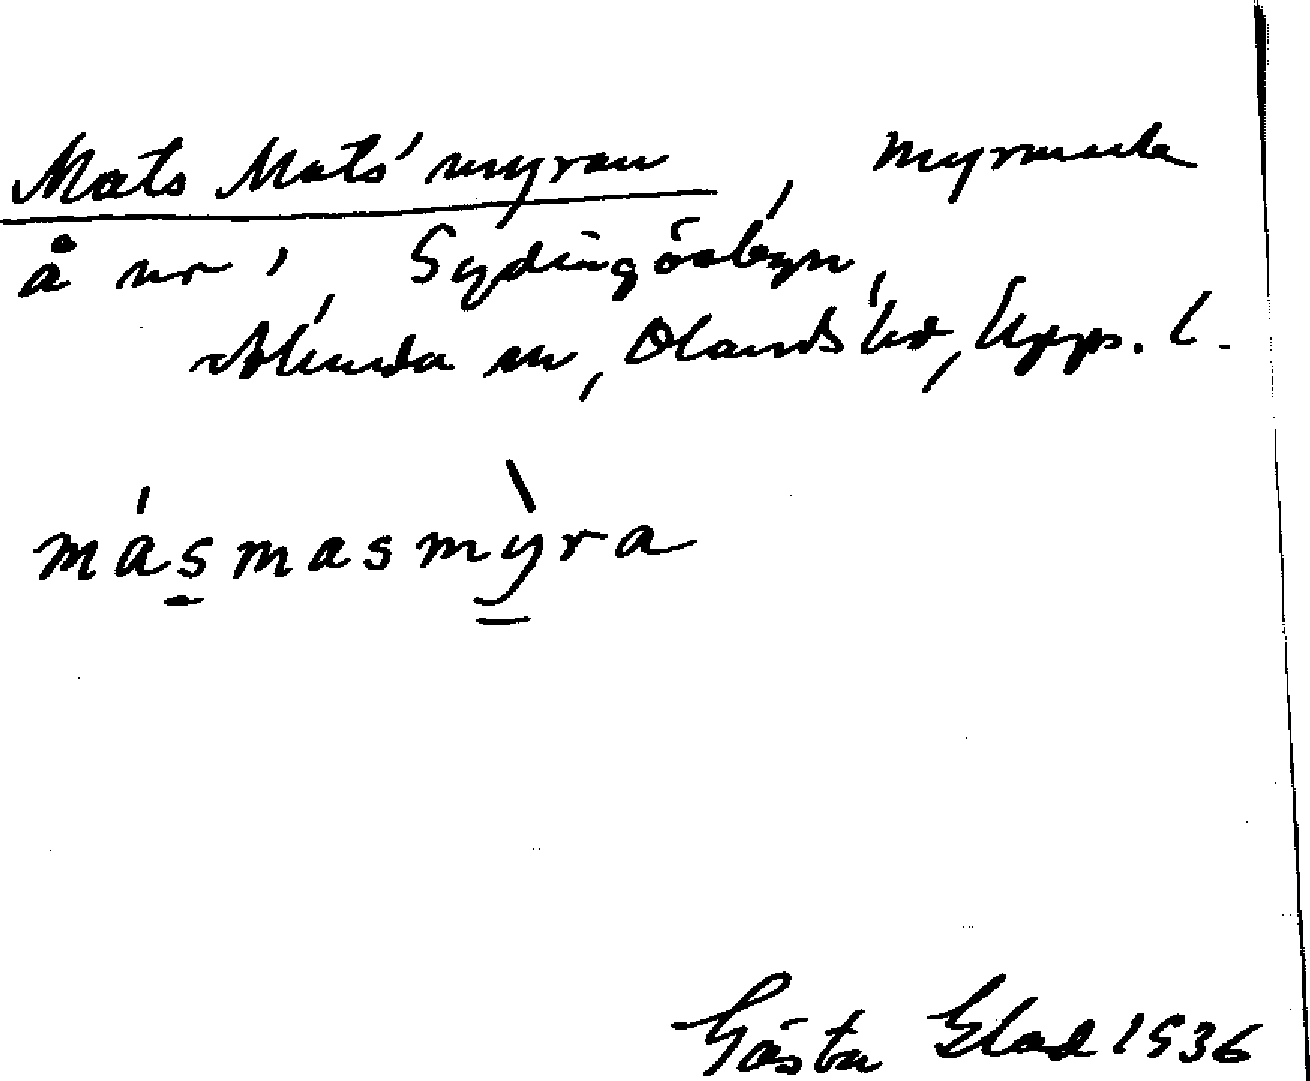 Mats Mats' myran, myrmark
å nr 1 Gydingösbyn,
Alunda sn, Olands hd, Upps. l.
másmasmỳra
Gösta Elad 1936